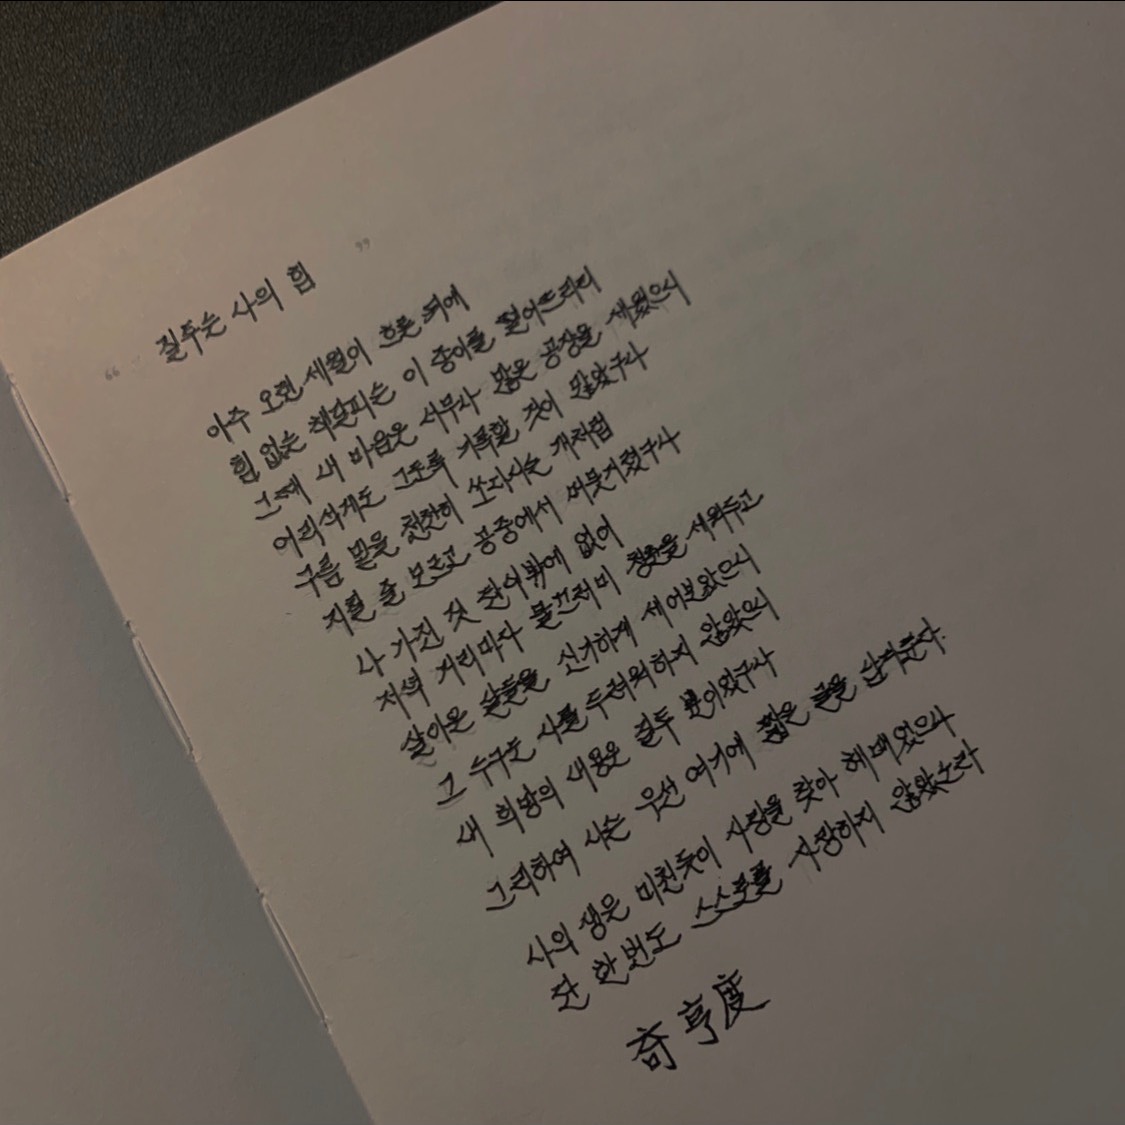 “ 질투는 나의 힘 ”
아주 오랜 세월이 흐른 뒤에
힘 없는 책갈피는 이 종이를 떨어뜨리리
그때 내 마음은 너무나 많은 공장을 세웠으니
어리석게도 그토록 기록할 것이 많았구나
구름 밑을 천천히 쏘다니는 개처럼
지칠 줄 모르고 공중에서 머뭇거렸구나
나 가진 것 탄식밖에 없어
저녁 거리마다 물끄러미 청춘을 세워두고
살아온 날들을 신기하게 세어보았으니
그 누구도 나를 두려워하지 않았으니
내 희망의 내용은 질투 뿐이었구나
그리하여 나는 우선 여기에 짧은 글을 남겨둔다.
나의 생은 미친듯이 사랑을 찾아 헤매었으나
단 한번도 스스로를 사랑하지 않았노라
奇亨度